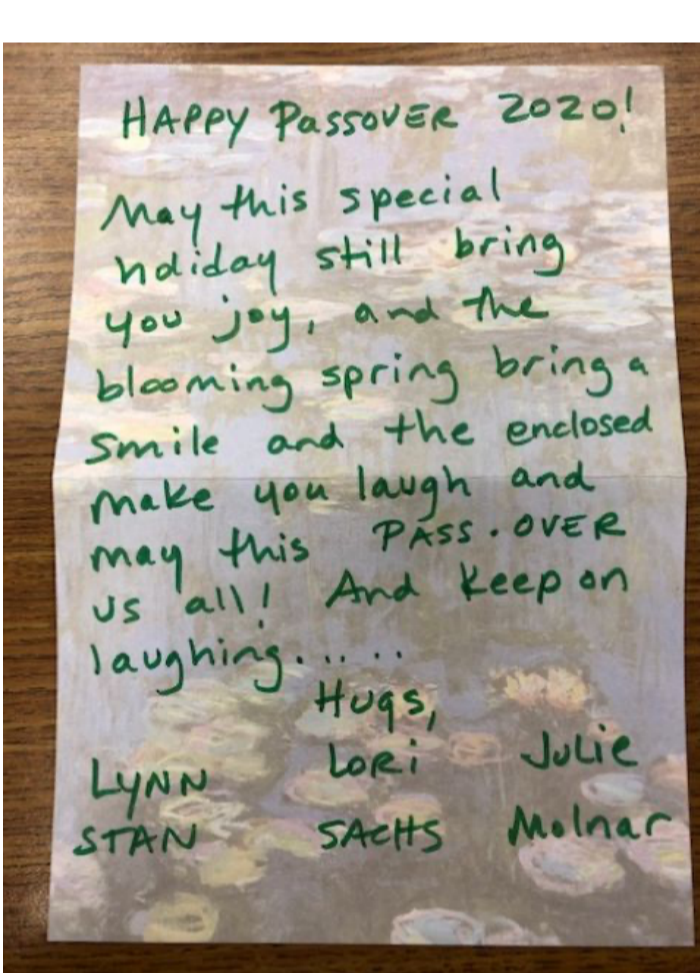 HAPPY PASSOVER 2020!
May this special
holiday still bring
you joy, and the
blooming spring bring a
smile and the enclosed
make you laugh and
may this PASS.OVER
us all! And keep on
laughing......
Hugs,
LYNN LORi JuLiE
STAN SACHS Molnar